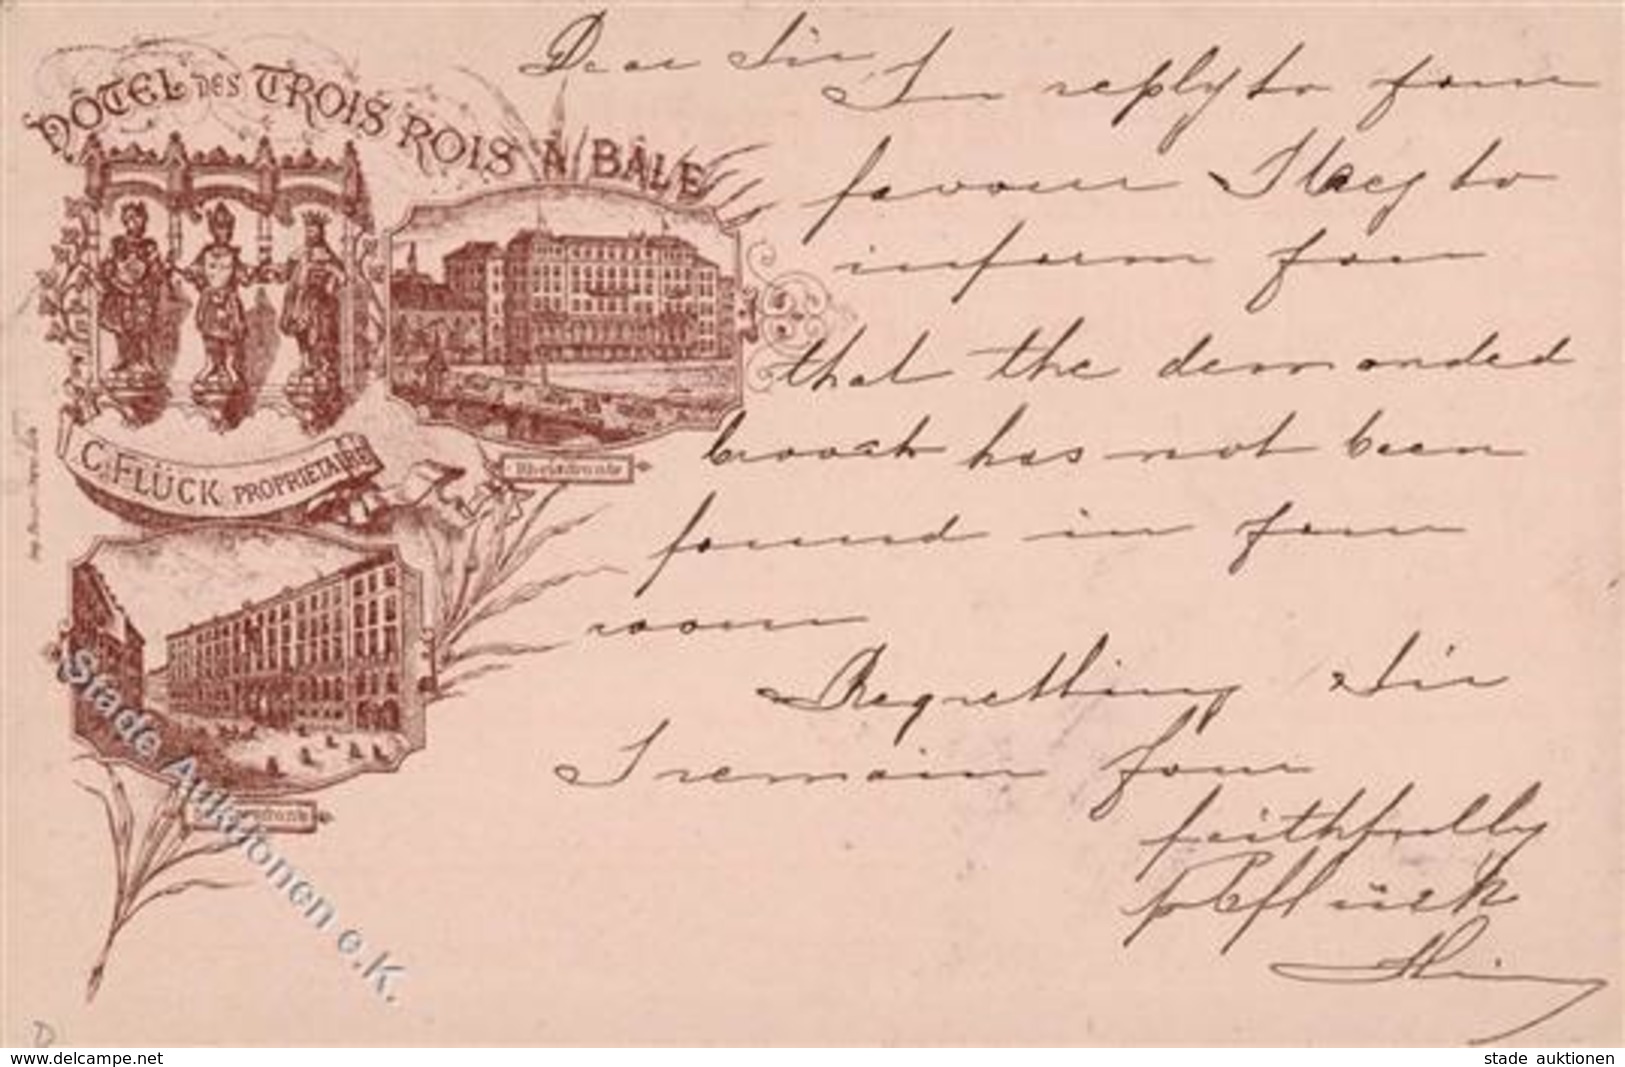 HÔTEL DES TROIS ROIS À BÂLE
C. FLÜCK PROPRIETAIRE
Rheinfronte
Dear Sir
In reply to your
favour I beg to
inform you
that the demanded
brooch has not been
found in your
room
Regretting Sir
I remain your
faithfully
p C Flück
Stade Auktionen e.K.
D
www.delcampe.net
stade auktionen